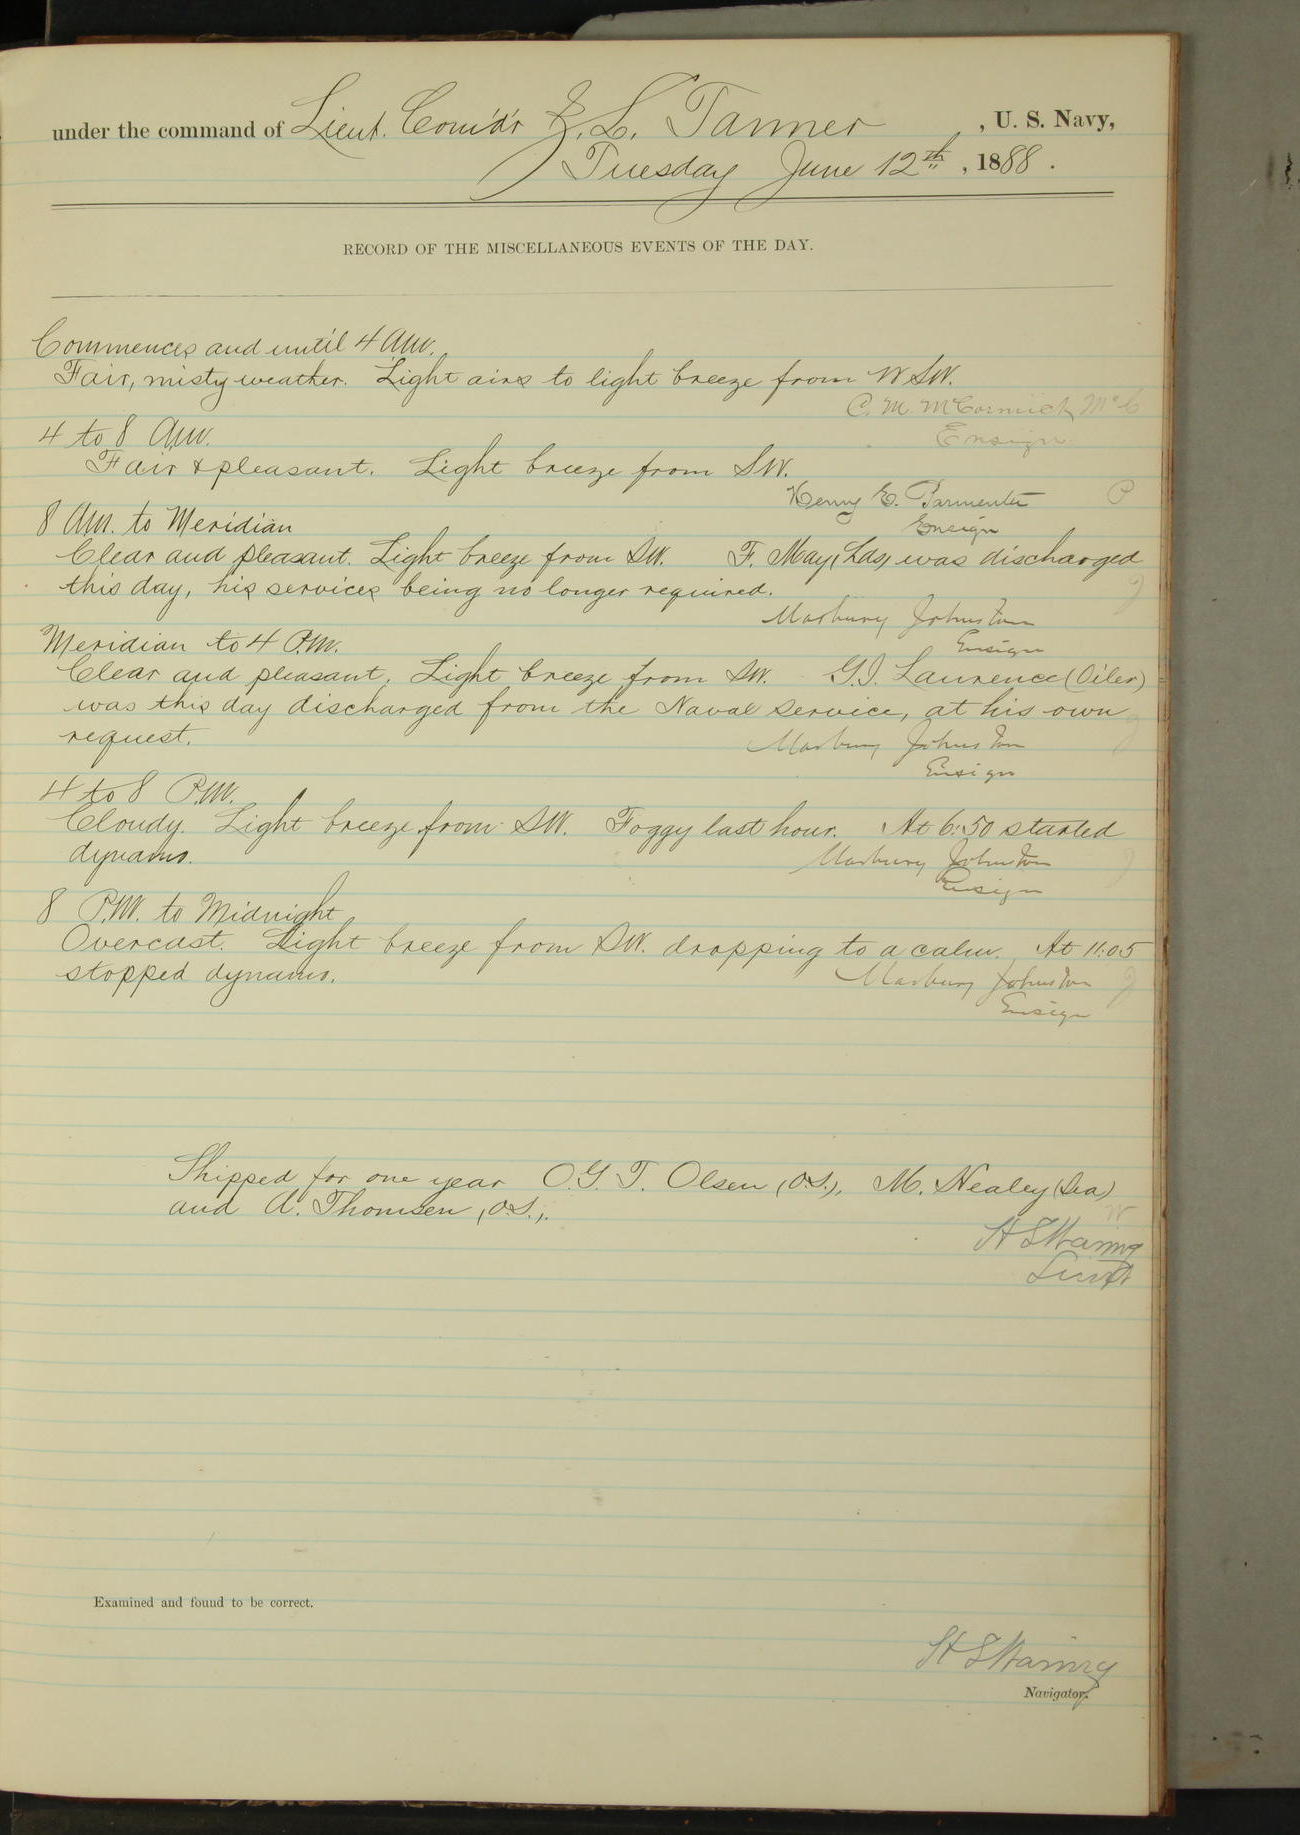 under the command of Lieut. Com'd'r Z. L. Tanner, U. S. Navy,
Tuesday June 12th, 1888.
RECORD OF THE MISCELLANEOUS EVENTS OF THE DAY.
Commences and until 4 A.M.
Fair, misty weather. Light airs to light breeze from WSW.
C. M. McCormick McC
Ensign
4 to 8 A.M.
Fair & pleasant. Light breeze from SW.
Henry E. Parmenter P
Ensign
8 A.M. to Meridian
Clear and pleasant. Light breeze from SW. F. May (Lds) was discharged
this day, his services being no longer required.
Marbury Johnston J
Ensign
Meridian to 4 P.M.
Clear and pleasant. Light breeze from SW. G.I. Laurence (Oiler)
was this day discharged from the Naval service, at his own
request.
Marbury Johnston J
Ensign
4 to 8 P.M.
Cloudy. Light breeze from SW. Foggy last hour. At 6:50 started
dynamo.
Marbury Johnston J
Ensign
8 P.M. to Midnight
Overcast. Light breeze from SW. dropping to a calm. At 11:05
stopped dynamo.
Marbury Johnston J
Ensign
Shipped for one year O.G.T. Olsen, (O.S.), M. Nealey (Sea)
and A. Thomsen, (O.S.).
W
H S Waring
Lieut
Examined and found to be correct.
H S Waring
Navigator.